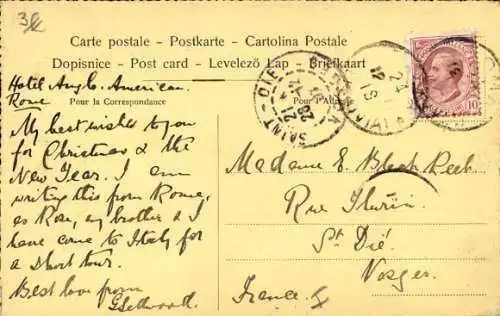 Carte postale - Postkarte - Cartolina Postale
Dopisnice - Post card - Levelező Lap - Briefkaart
Pour la Correspondance
Pour l'Adresse
Hotel Anglo-American.
Rome
My best wishes to you
for Christmas & the
New Year. I am
writing this from Rome,
as Rose, my brother & I
have come to Italy for
a short tour.
Best love from
Madame E.
Rue
St Dié
Vosges
France
SAINT-DIÉ
10